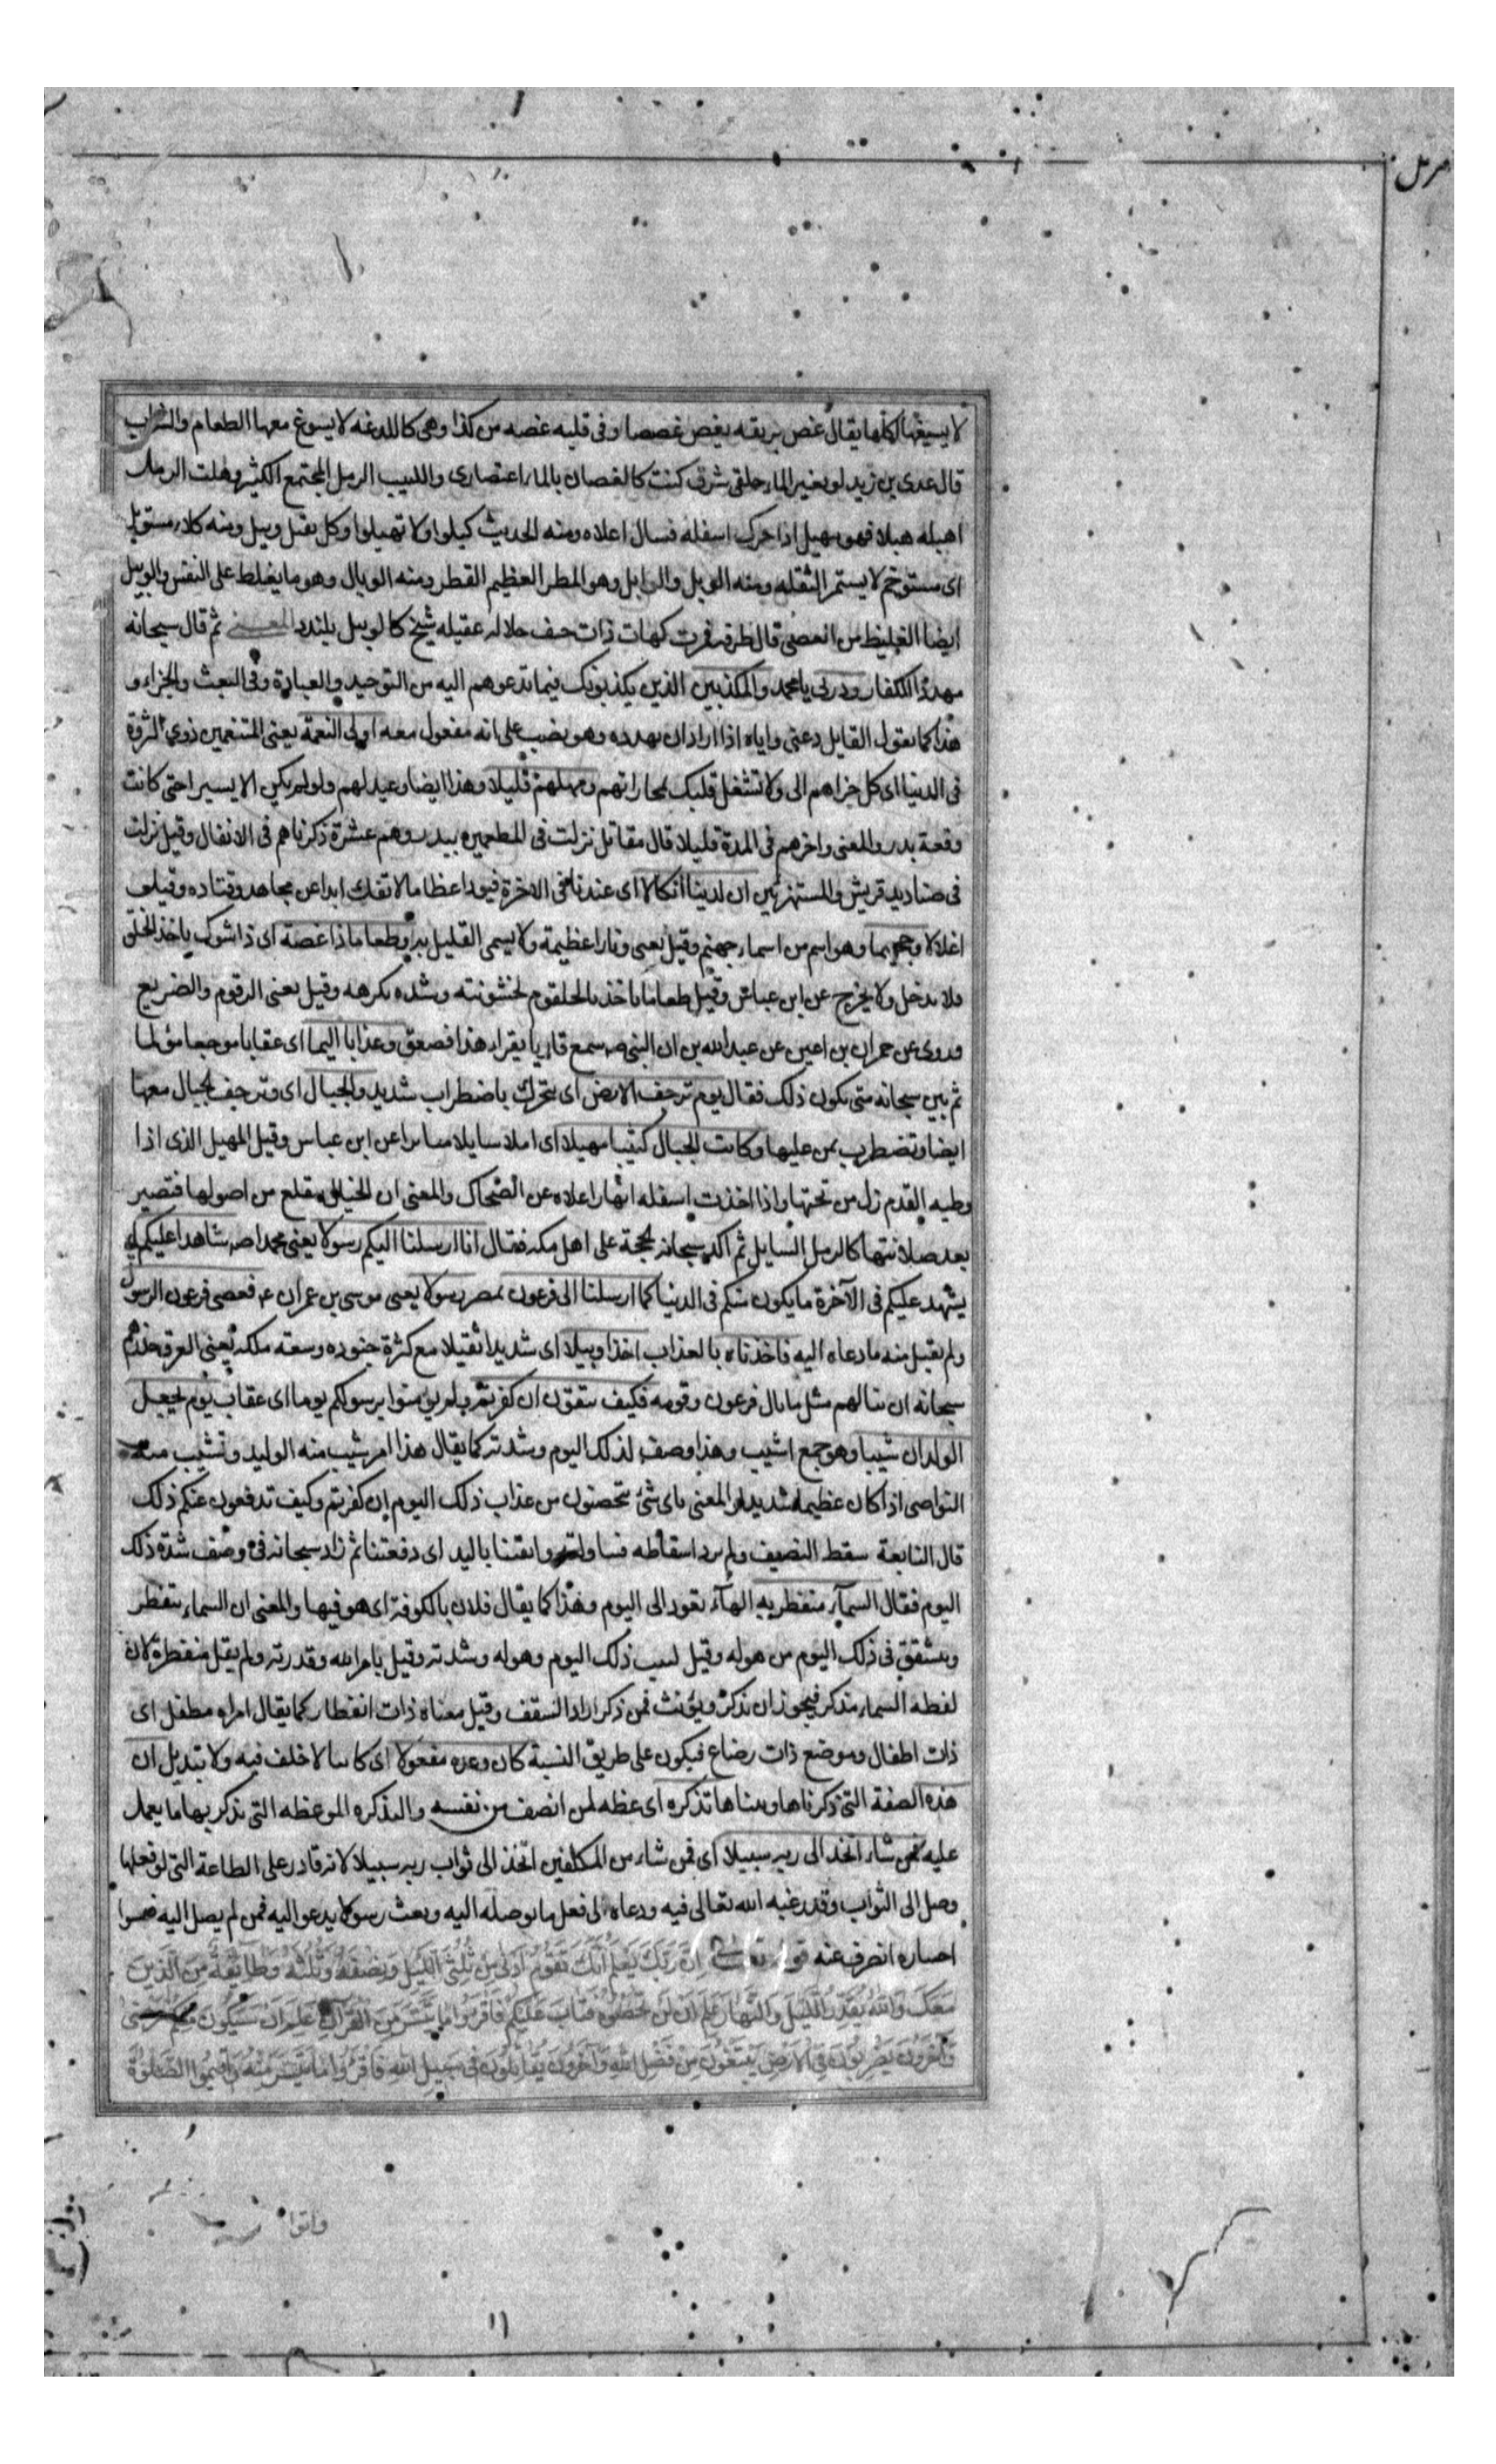 مزمل
لا يسيغها اكلها يقال غص بريقه يغص غصصا وفى قلبه غصه من كذا وهى كاللدغه لا يسوغ معها الطعام والشراب
قال عدى بن زيد لو بغير الماء حلقى شرق كنت كالغصان بالماء اعتصارى والكثيب الرمل المجتمع الكثير وهلت الرمل
اهيله هيلا فهو مهيل اذا حرك اسفله فسال اعلاه ومنه الحديث كيلوا ولا تهيلوا وكل ثقيل وبيل ومنه كلاء مستوبل
اى مستوخم لا يستمرء لثقله ومنه الوبل والوابل وهو المطر العظيم القطر ومنه الوبال وهو ما يغلظ على النفس والوبيل
ايضا الغليظ من العصى قال طرفه فمرت كهات ذات خيف جلاله عقيله شيخ كالوبيل يلندد المعنى ثم قال سبحانه
مهددا للكفار وذرنى يا محمد والمكذبين الذين يكذبونك فيما تدعوهم اليه من التوحيد والعبادة وفى البعث والجزاء و
هذا كما يقول القايل دعنى واياه اذا اراد ان يهدده وهو نصب على انه مفعول معه اولى النعمة يعنى المتنعمين ذوى الثروة
فى الدنيا اى كل جزاهم الى ولا تشغل قلبك بمجازاتهم ومهلهم قليلا وهذا ايضا وعيد لهم ولم يكن الا يسيرا حتى كانت
وقعة بدر والمعنى واخرهم فى المدة قليلا قال مقاتل نزلت فى المطعمين ببدر وهم عشرة ذكرناهم فى الانفال وقيل نزلت
فى صناديد قريش والمستهزئين ان لدينا انكالا اى عندنا فى الاخرة قيودا عظاما لا تفك ابدا عن مجاهد وقتاده وقيل
اغلالا وجحيما وهو اسم من اسماء جهنم وقيل يعنى ونارا عظيمة ولا يسمى القليل به وطعاما ذا غصة اى ذا شوك ياخذ الحلق
فلا يدخل ولا يخرج عن ابن عباس وقيل طعاما ياخذ بالحلقوم لخشونته وشده تكرهه وقيل يعنى الزقوم والضريع
وروى عن حمران بن اعين عن عبد الله بن ان النبى ص سمع قاريا يقراء هذا فصعق وعذابا اليما اى عقابا موجعا مؤلما
ثم بين سبحانه متى يكون ذلك فقال يوم ترجف الارض اى تتحرك باضطراب شديد والجبال اى وترجف الجبال معها
ايضا وتضطرب بمن عليها وكانت الجبال كثيبا مهيلا اى رملا سايلا متناثرا عن ابن عباس وقيل المهيل الذى اذا
وطيه القدم زل من تحتها واذا اخذت اسفله انهار اعلاه عن الضحاك والمعنى ان الجبال تنقلع من اصولها فتصير
بعد صلابتها كالرمل السايل ثم اكد سبحانه الحجة على اهل مكه فقال انا ارسلنا اليكم رسولا يعنى محمدا ص شاهدا عليكم اى
يشهد عليكم فى الآخرة ما يكون منكم فى الدنيا كما ارسلنا الى فرعون بمصر رسولا يعنى موسى بن عمران ع فعصى فرعون الرسول
ولم يقبل منه ما دعاه اليه فاخذناه بالعذاب اخذا وبيلا اى شديدا ثقيلا مع كثرة جنوده وسعة ملكه يعنى الغرق حذرهم
سبحانه ان ينالهم مثل ما نال فرعون وقومه فكيف تتقون ان كفرتم ولم تؤمنوا برسولكم يوما اى عقاب يوم يجعل
الولدان شيبا وهو جمع اشيب وهذا وصف لذلك اليوم وشدته كما يقال هذا امر يشيب منه الوليد وتشيب منه
النواصى اذا كان عظيما شديدا والمعنى باى شئ تتحصنون من عذاب ذلك اليوم ان كفرتم وكيف تدفعون عنكم ذلك
قال النابغة سقط النصيف ولم ترد اسقاطه فتناولته واتقتنا باليد اى دفعتنا ثم زاد سبحانه فى وصف شدة ذلك
اليوم فقال السماء منفطر به الهاء تعود الى اليوم وهذا كما يقال فلان بالكوفة اى هو فيها والمعنى ان السماء تنفطر
وتتشقق فى ذلك اليوم من هوله وقيل بسبب ذلك اليوم وهوله وشدته وقيل بامر الله وقدرته ولم يقل منفطرة لان
لفظه السماء مذكر فيجوز ان يذكر ويؤنث فمن ذكر اراد السقف وقيل معناه ذات انفطار كما يقال امراه مطفل اى
ذات اطفال ومرضع ذات رضاع فيكون على طريق النسبة كان وعده مفعولا اى كاينا لا خلف فيه ولا تبديل ان
هذه الصفة التى ذكرناها وبيناها تذكره اى عظه لمن انصف من نفسه والتذكره الموعظه التى يذكر بها ما يعمل
عليه فمن شاء اتخذ الى ربه سبيلا اى فمن شاء من المكلفين اتخذ الى ثواب ربه سبيلا لانه قادر على الطاعة التى لو فعلها
وصل الى الثواب وقد رغبه الله تعالى فيه ودعاه الى فعل ما يوصله اليه وبعث رسولا يدعو اليه فمن لم يصل اليه فبسوء
اختياره انصرف عنه قوله تعالى اِنَّ رَبَّكَ يَعْلَمُ اَنَّكَ تَقُومُ اَدْنى مِنْ ثُلُثَىِ الَّيْلِ وَنِصْفَهُ وَثُلُثَهُ وَطَائِفَةٌ مِنَ الَّذِينَ
مَعَكَ وَاللهُ يُقَدِّرُ اللَّيْلَ وَالنَّهَارَ عَلِمَ اَنْ لَنْ تُحْصُوهُ فَتَابَ عَلَيْكُمْ فَاقْرَؤُا مَا تَيَسَّرَ مِنَ الْقُرْآنِ عَلِمَ اَنْ سَيَكُونُ مِنْكُمْ مَرْضى
وَآخَرُونَ يَضْرِبُونَ فِى الْاَرْضِ يَبْتَغُونَ مِنْ فَضْلِ اللهِ وَآخَرُونَ يُقَاتِلُونَ فِى سَبِيلِ اللهِ فَاقْرَؤُا مَا تَيَسَّرَ مِنْهُ وَاَقِيمُوا الصَّلٰوةَ
واتوا
١١